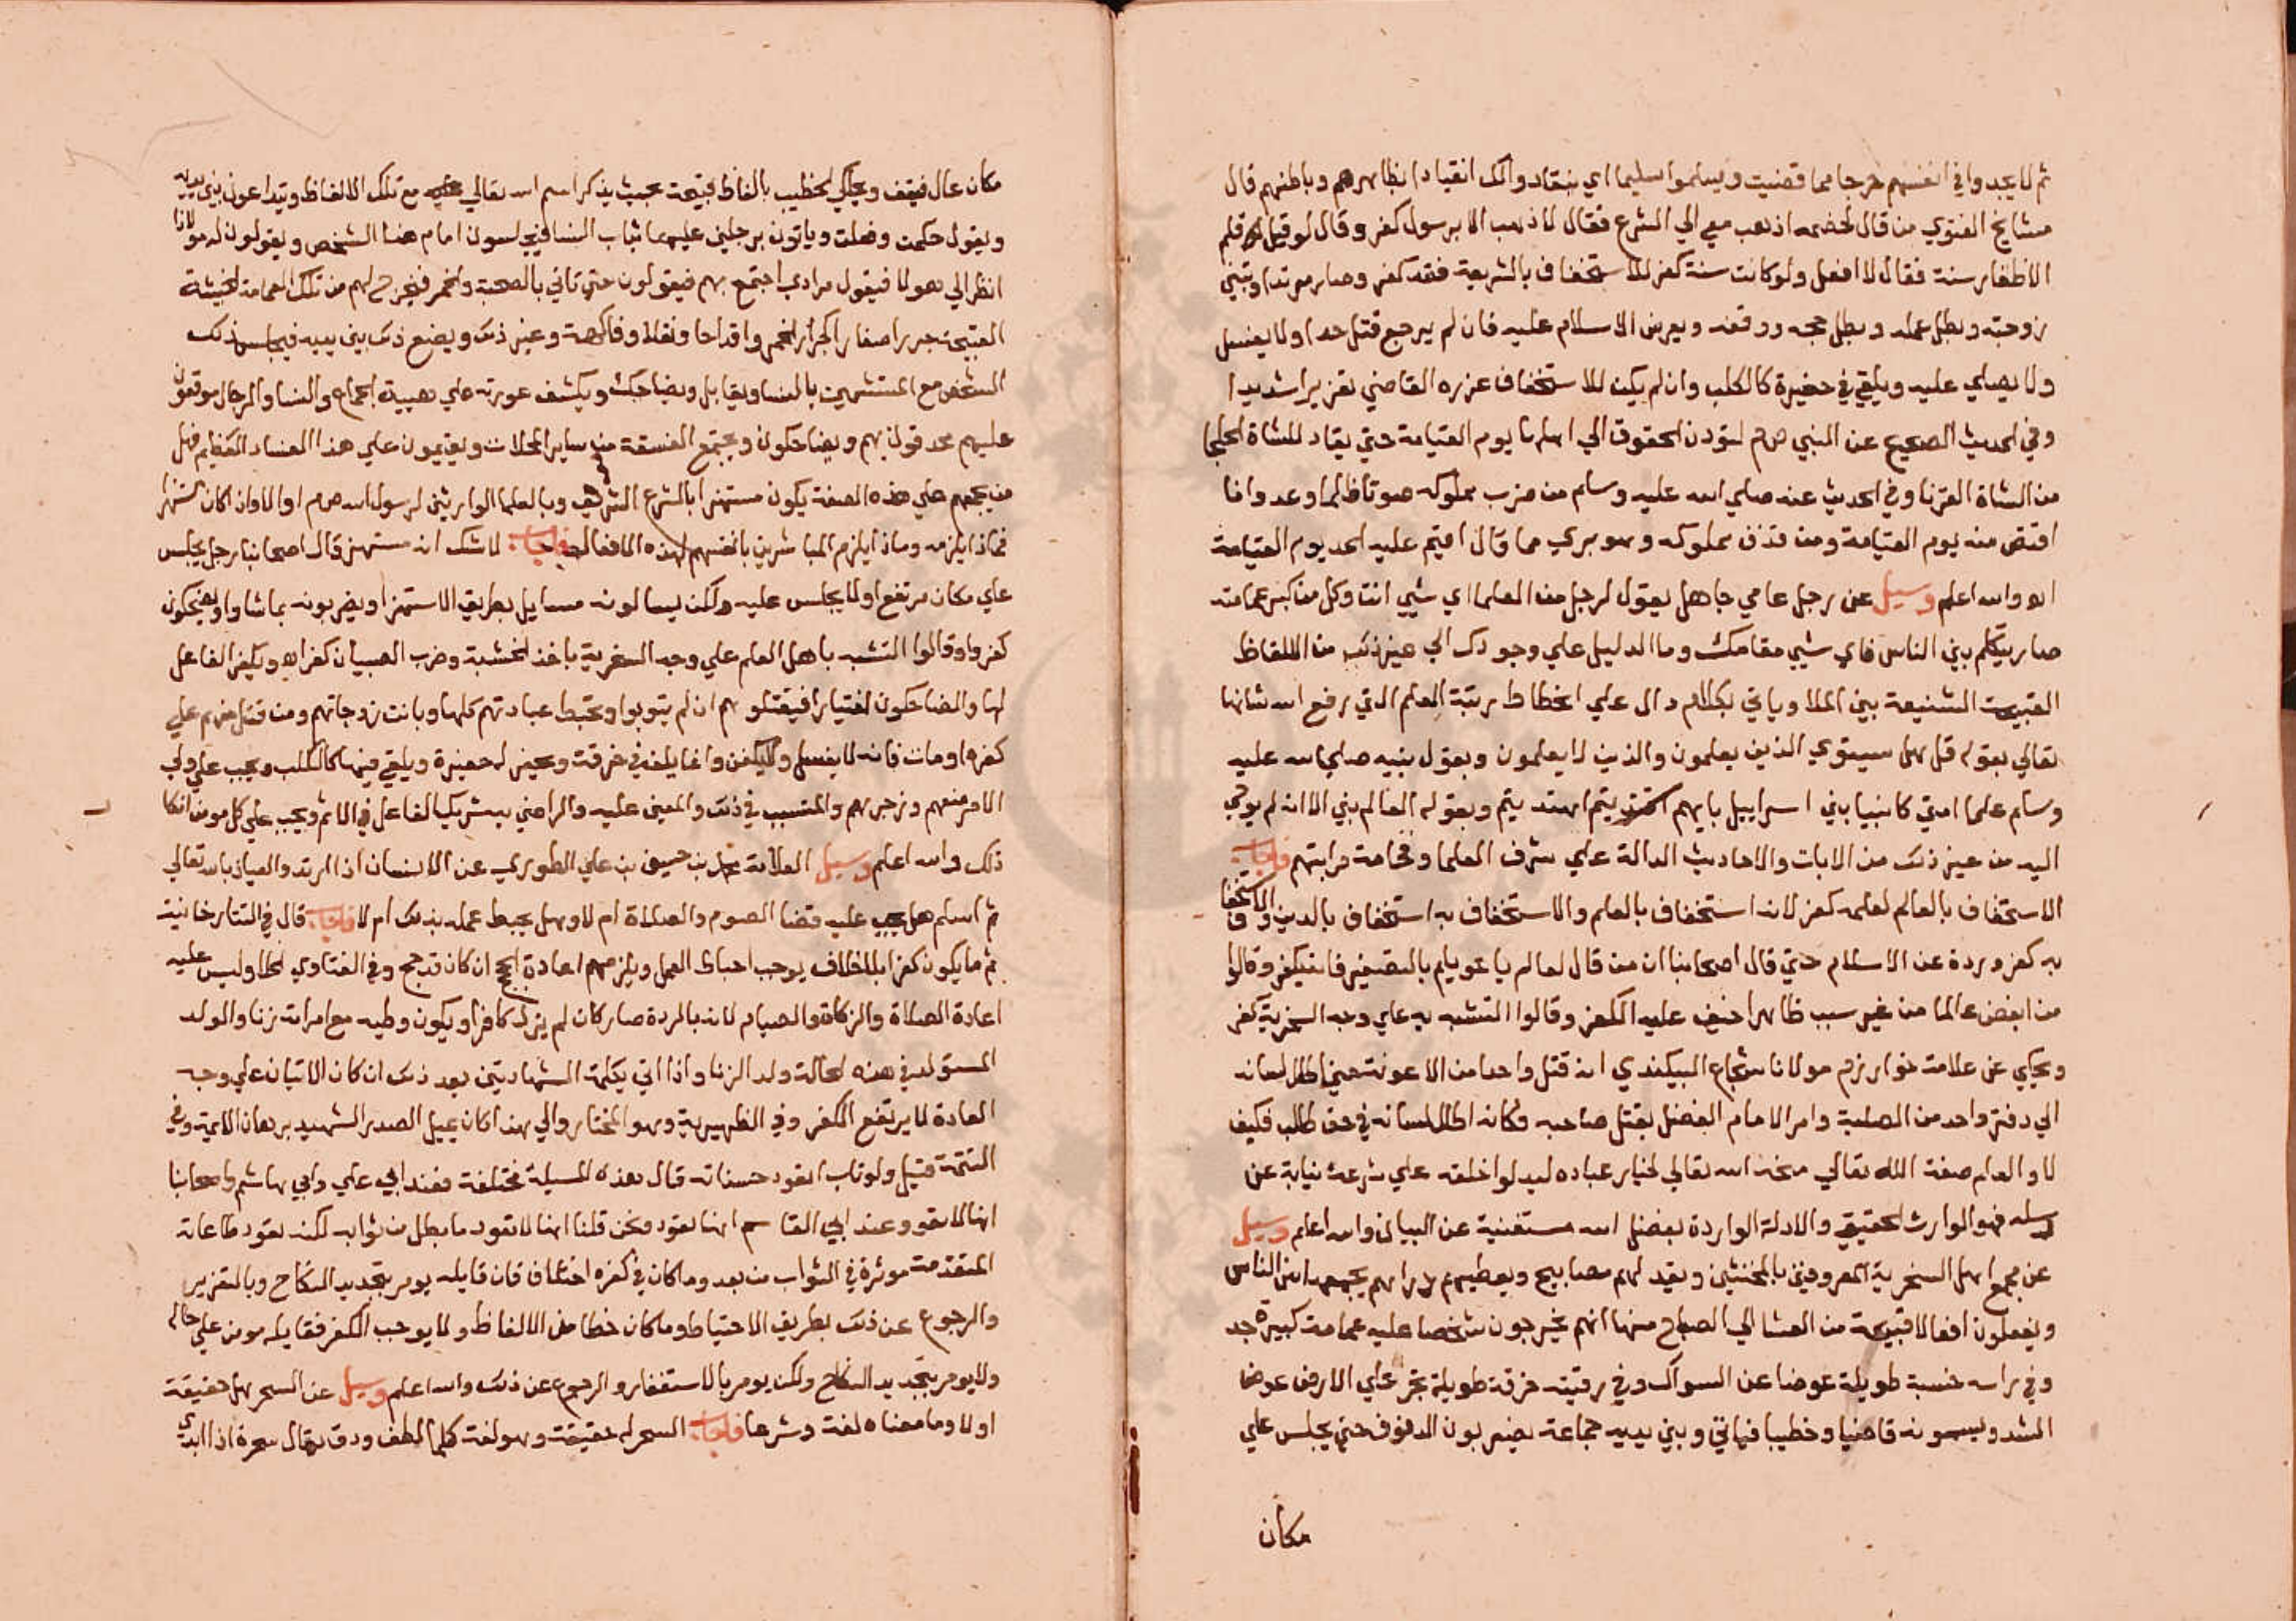 ثم لا يجدوا في انفسهم حرجا مما قضيت ويسلموا تسليما اي ينقادوا لك انقيادا بظاهرهم وباطنهم قال
مشايخ الفتوي من قال لخصمه اذهب معي الي الشرع فقال لا اذهب الا برسول كفر وقال لو قيل له قلم
الاظفار سنة فقال لا افعل ولو كانت سنة كفر للاستخفاف بالشريعة فقد كفر وصار مرتدا وتبين
زوجته وبطل عمله وبطل حجه ووقفه ويعرض الاسلام عليه فان لم يرجع قتل حدا ولا يغسل
ولا يصلي عليه ويلقي في حفيرة كالكلب وان لم يكن للاستخفاف عزره القاضي تعزيرا شديدا
وفي الحديث الصحيح عن النبي صم لتودن الحقوق الي اهلها يوم القيامة حتي يقاد للشاة الجلحا
من الشاة القرنا وفي الحديث عنه صلي الله عليه وسلم من ضرب مملوكه صوتا ظلما وعدوانا
اقتص منه يوم القيامة ومن قذف مملوكه وهو بري مما قال اقيم عليه الحد يوم القيامة
اه والله اعلم وسيل عن رجل عامي جاهل يقول لرجل من العلما اي شيي انت وكل من كبر عمامته
صار يتكلم بين الناس فاي شيي مقامك وما الدليل علي وجودك الي غير ذلك من الالفاظ
القبيحة الشنيعة بين الملا وياتي بكلام دال علي انحطاط رتبة العلم الذي رفع الله شانها
تعالي بقوله قل هل يستوي الذين يعلمون والذين لا يعلمون وبقول نبيه صلي الله عليه
وسلم علما امتي كانبيا بني اسراييل بايهم اقتديتم اهتديتم وبقوله العالم نبي الا انه لم يوحي
اليه من غير ذلك من الايات والاحاديث الدالة علي شرف العلما وفخامة مرابتهم فاجاب
الاستخفاف بالعالم لعلمه كفر لانه استخفاف بالعلم والاستخفاف به استخفاف بالدين والاستخفاف
به كفر وردة عن الاسلام حتي قال اصحابنا ان من قال لعالم يا عويلم بالتصغير فانه يكفر وقالوا
من ابغض عالما من غير سبب ظاهر اخيف عليه الكفر وقالوا التشبه به علي وجه السخرية كفر
ويحكي عن علامة خوارزم مولانا شجاع البيكندي انه قتل واحدا من الاعونة حين اطال لسانه
الي دفتر واحد من الصلبة وامر الامام الفضل بقتل صاحبه وكانه اطال لسانه في حق طالب فكيف
لا والعلم صفة الله تعالي منحه الله تعالي لخيار عباده ليدلوا خلقه علي شرعه نيابة عن
رسله فهو الوارث الحقيقي والادلة الواردة بفضل الله مستغنية عن البيان والله اعلم وسيل
عن مجمع اهل السخرية المعروفين بالمخنثين ويقد لهم مصابيح ويعطيهم دراهم يجمعها من الناس
ويفعلون افعالا قبيحة من العشا الي الصباح منها انهم يخرجون شخصا عليه عمامة كبيرة جد
وفي راسه خشبة طويلة عوضا عن السواك وفي رقبته خرقة طويلة تجر علي الارض عوضا
الشد ويسمونه قاضيا وخطيبا فياتي وبين يديه جماعة يضربون الدفوف حتي يجلس علي
مكان
مكان عال فيقف ويحكي الخطيب بالفاظ قبيحة بحيث يذكر اسم الله تعالي مع تلك الالفاظ ويتداعون بين يديه
ويقول حكمت وفعلت وياتون برجلين عليهما ثياب النسا فيجلسون امام هذا الشخص ويقولون له مولانا
انظر الي هولا فيقول مرادي اجتمع بهم فيقولون حتي تاتي بالصحبة والخمر فيخرج لهم من تلك العمامة الخبيثة
القبيحة جررا صغار الجرار الخمر واقداحا ونقلا وفاكهة وغير ذلك ويضع ذلك بين يديه فيجلس ذلك
الشخص مع المتشبهين بالنسا ويقابل ويضاحك ويكشف عورته علي هيية الجماع والنسا والرجال موقوفون
عليهم محدقون بهم ويضاحكون ويجتمع الفسقة من ساير المحلات ويقيمون علي هذا الفساد العظيم فهل
من يجمعهم علي هذه الصفة يكون مستهزا بالشرع الشريف وبالعلما الوارثين لرسول الله صم او الا واذا كان مستهزا
فماذا يلزمه وماذا يلزم المباشرين بانفسهم لهذه الافعال فاجاب لا شك انه مستهز قال اصحابنا رجل يجلس
علي مكان مرتفع او لا يجلس عليه ولكن يسالونه مسايل بطريق الاستهزا ويضربونه بما شاوا ويضحكون
كفروا وقالوا التشبه باهل العلم علي وجه السخرية باخذ الخشبة وضرب الصبيان كفر اه ويكفر الفاعل
لها والضاحكون اختيارا فيقتلوهم ان لم يتوبوا وتحبط عبادتهم كلها وبانت زوجاتهم ومن قتل منهم علي
كفره او مات فانه لا يغسل ولا يكفن وانما يلف في خرقة وحفر له حفيرة ويلقي فيها كالكلب ويجب علي ولي
الامر منعهم وزجرهم والمتسبب في ذلك والمعين عليه والراضي به شريك الفاعل في الاثم ويجب علي كل مومن انكا
ذلك والله اعلم وسيل العلامة محمد بن حسين بن علي الطوري عن الانسان اذا ارتد والعياذ بالله تعالي
ثم اسلم هل يجب عليه قضا الصوم والصلاة ام لا وهل يحبط عمله بذلك ام لا فاجاب قال في التتارخانية
ثم ما يكون كفرا بلا خلاف يوجب احباط العمل ويلزمهم اعادة الحج ان كان قد حج وفي الفتاوي الخلا وليس عليه
اعادة الصلاة والزكاة والصيام لانه بالردة صار كان لم يزل كافرا ويكون وطيه مع امراته زنا والولد
المتولد في هذه الحالة ولد الزنا واذا اتي بكلمة الشهادتين بعد ذلك ان كان الاتيان علي وجه
العادة لا يرتفع الكفر وفي الظهيرية وهو المختار والي هذا كان يميل الصدر الشهيد برهان الايمة وفي
التتمة قيل ولو تاب اتعود حسناته قال هذه المسيلة مختلفة فعند ابي علي وابي هاشم واصحابنا
انها لا تعود وعند ابي القاسم انها تعود ونحن قلنا انها لا تعود ما بطل من ثوابه لكنه تعود طاعاته
المتقدمة موثرة في الثواب من بعد وما كان في كفره اختلاف فان قايله يومر بتجديد النكاح وبالتعزير
والرجوع عن ذلك بطريق الاحتياط وما كان خطا من الالفاظ ولا يوجب الكفر فقايله مومن علي حاله
ولا يومر بتجديد النكاح ولكن يومر بالاستغفار والرجوع عن ذلك والله اعلم وسيل عن السحر هل حقيقة
او لا وما معناه لغة وشرعا فاجاب السحر له حقيقة وهو لغة كلما لطف ودق يقال سحره اذا ابدي